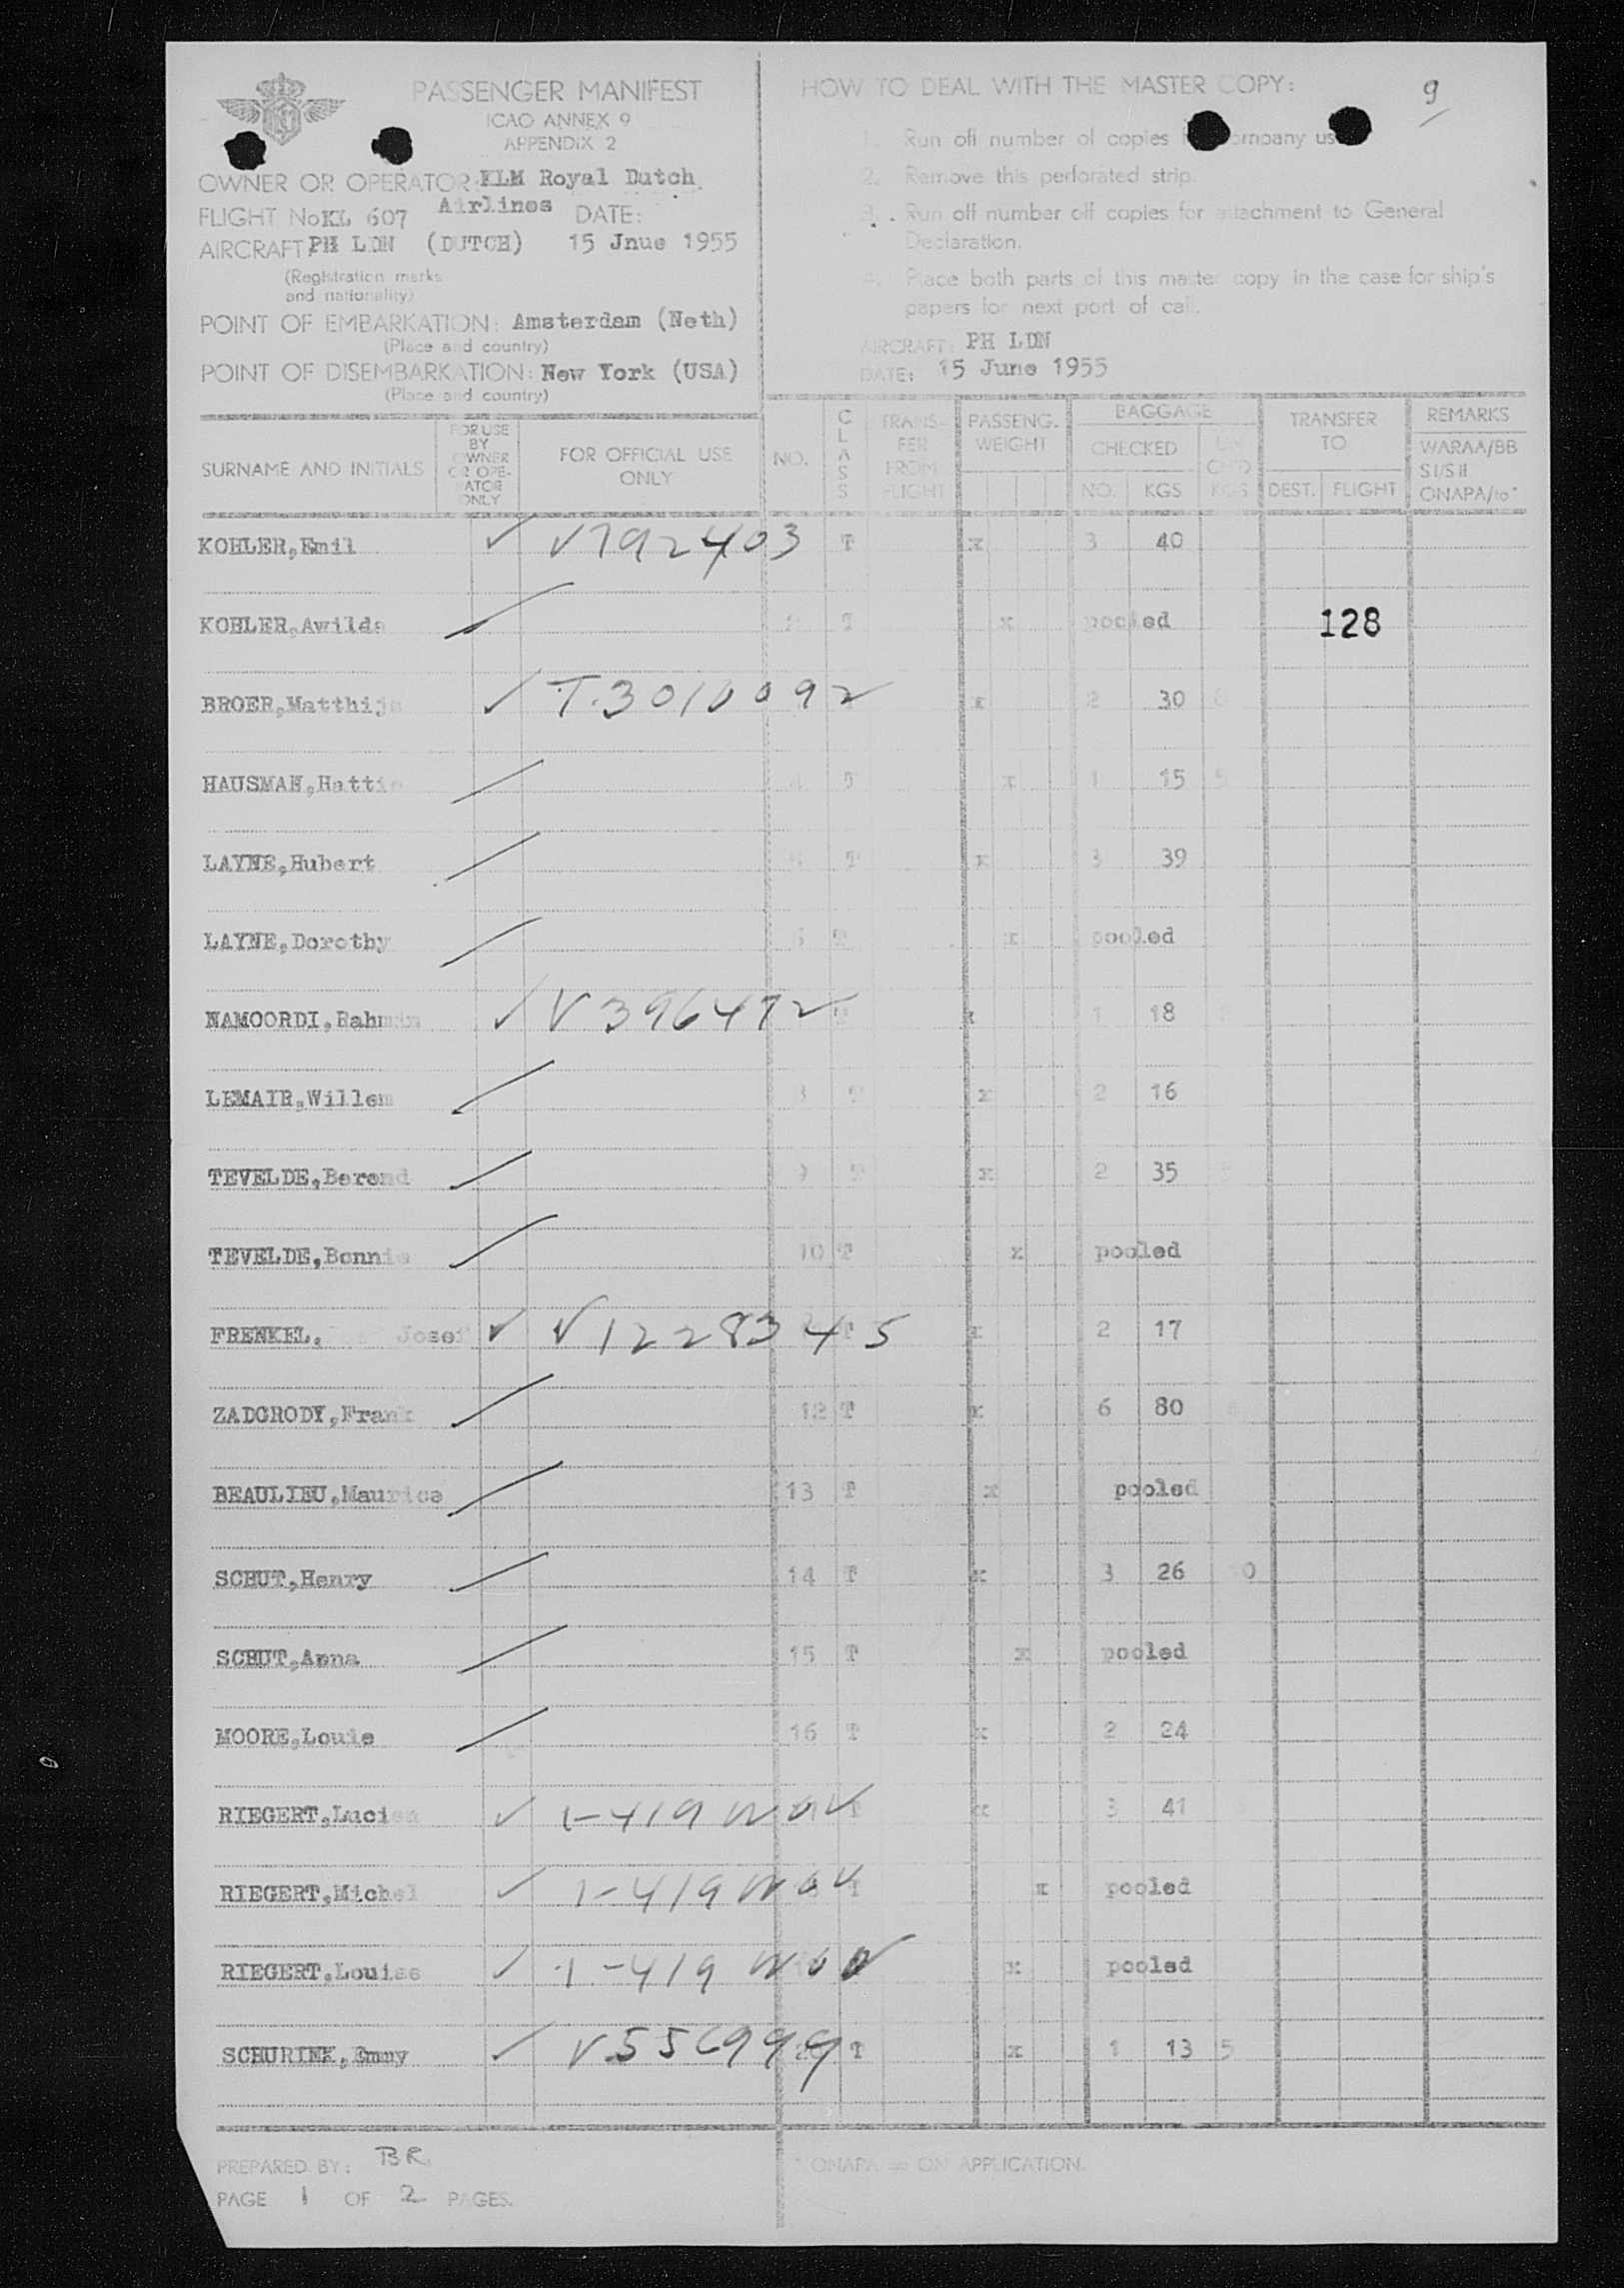 PASSENGER MANIFEST
ICAO ANNEX 9
APPENDIX 2
OWNER OR OPERATOR: KLM Royal Dutch
Airlines
FLIGHT No KL 607 DATE:
AIRCRAFT: PH LDN (DUTCH) 15 Jnue 1955
(Registration marks
and nationality)
POINT OF EMBARKATION: Amsterdam (Neth)
(Place and country)
POINT OF DISEMBARKATION: New York (USA)
(Place and country)
HOW TO DEAL WITH THE MASTER COPY:
9
1. Run off number of copies company
2. Remove this perforated strip.
3. Run off number off copies for attachment to General
Declaration.
4. Place both parts of this master copy in the case for ship's
papers for next port of call.
AIRCRAFT: PH LDN
DATE: 15 June 1955
SURNAME AND INITIALS FOR USE BY OWNER OR OPE- ATOR ONLY FOR OFFICIAL USE ONLY NO. CLASS TRANS- FER FROM FLIGHT PASSENG. WEIGHT BAGGAGE CHECKED NO. KGS KGS TRANSFER TO DEST. FLIGHT REMARKS WARAA/BB SI/SII ONAPA/to*
KOHLER,Emil ✓ V792403 T x 3 40
KOHLER,Awilda T x pooled 128
BROER,Matthijs ✓ T.3010092 x 2 30
HAUSMAN,Hattie 4 T x 1 15 5
LAYNE,Hubert T x 3 39
LAYNE,Dorothy T x pooled
NAMOORDI, ✓ V396472 x 1 18
LEMAIR,Willem T x 2 16
TEVELDE,Berend 9 T x 2 35
TEVELDE,Bonnie 10 T x pooled
FRENKEL, Josef ✓ V1228345 T x 2 17
ZADGRODY,Frank 12 T x 6 80
BEAULIEU,Maurice 13 T x pooled
SCHUT,Henry 14 T x 3 26
SCHUT,Anna 15 T x pooled
MOORE,Louie 16 T x 2 24
RIEGERT,Lucien ✓ 1-419 T x 3 41
RIEGERT,Michel ✓ 1-419 T x pooled
RIEGERT,Louise ✓ 1-419 x pooled
SCHURINK,Emmy ✓ V556999 T x 1 13 5
PREPARED BY: BR.
PAGE 1 OF 2 PAGES.
* ONAPA = ON APPLICATION.